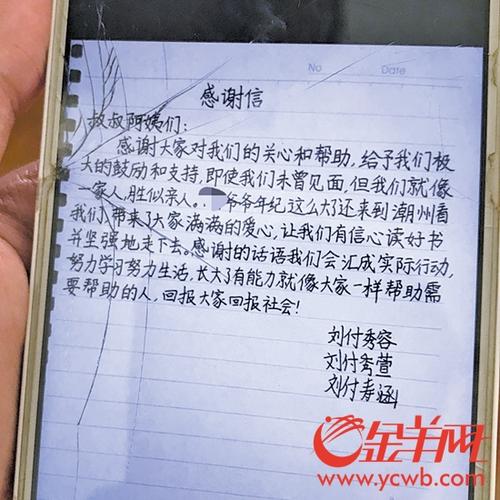 No
Date
感谢信
叔叔阿姨们：
感谢大家对我们的关心和帮助，给予我们极
大的鼓励和支持，即使我们未曾见面，但我们就像
一家人，胜似亲人。爷爷年纪这么大了还来到潮州看
我们，带来了大家满满的爱心，让我们有信心读好书
并坚强地走下去。感谢的话语我们会汇成实际行动，
努力学习努力生活，长大了有能力就像大家一样帮助需
要帮助的人，回报大家回报社会！
刘付秀容
刘付秀萱
刘付寿涵
金羊网
www.ycwb.com